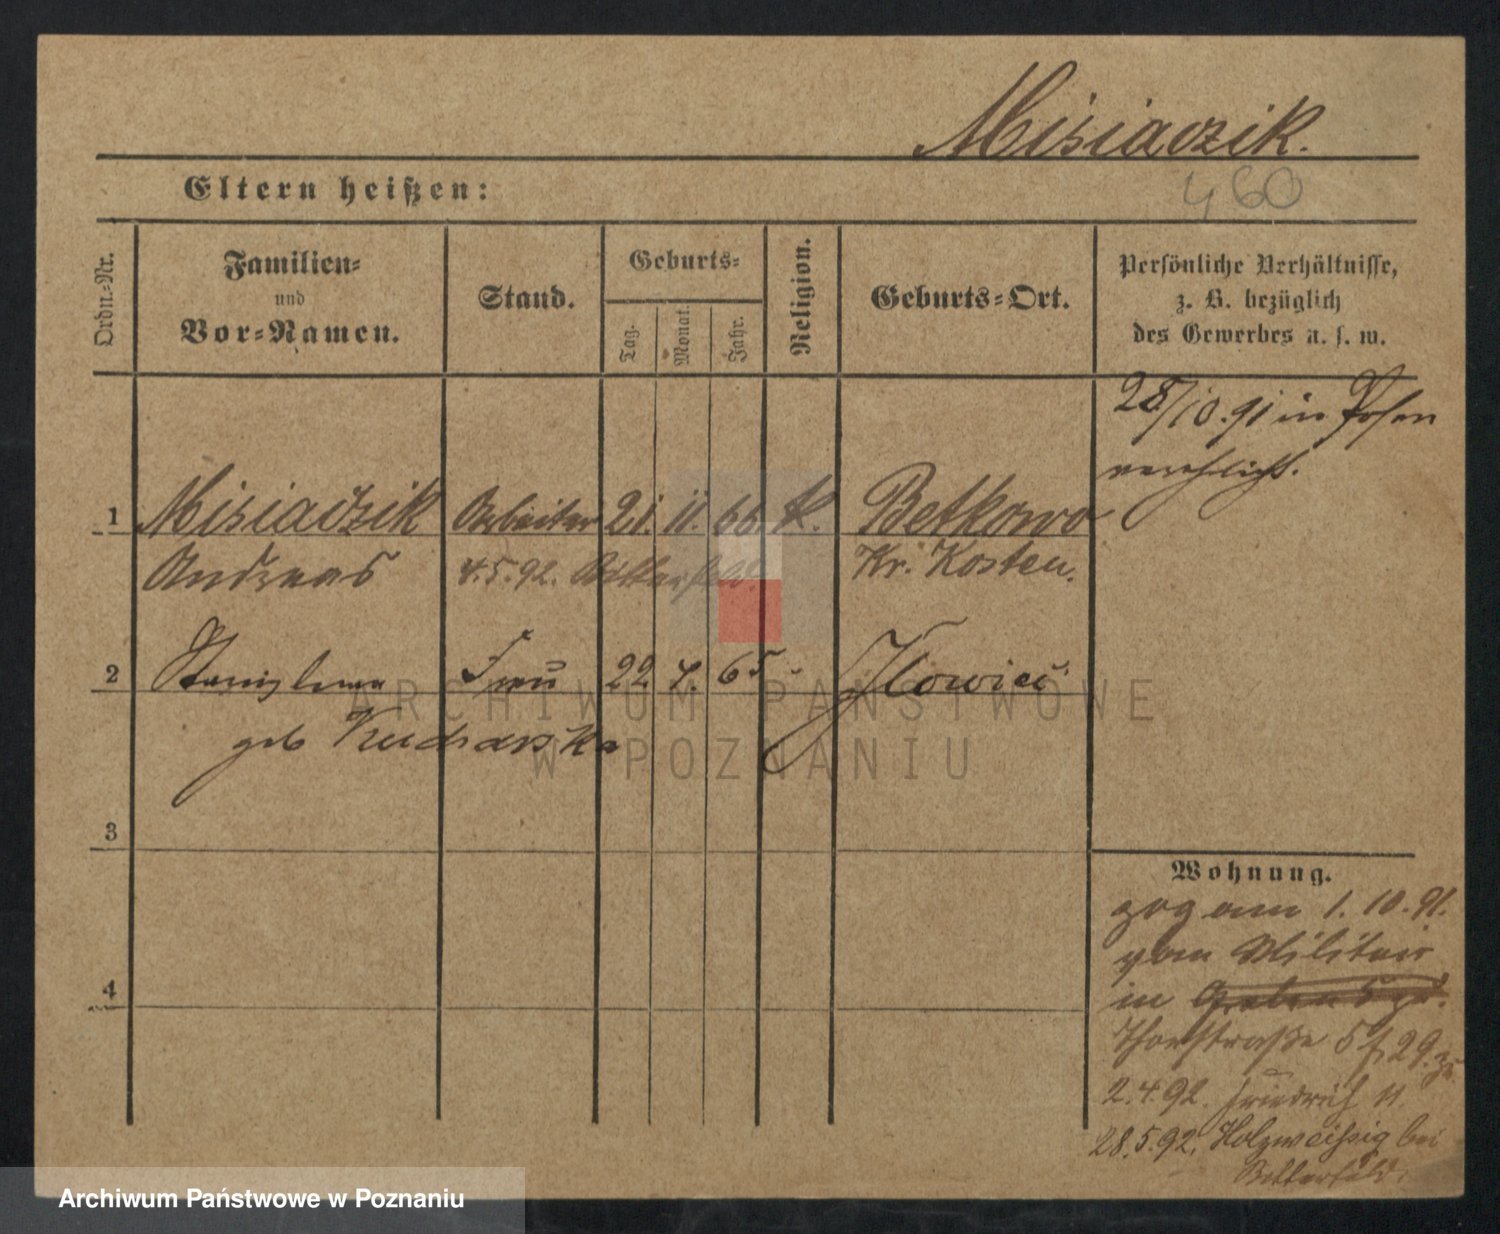 Misiaczik.
Eltern heißen:
460
Ordn.-Nr.
Familien-
und
Vor-Namen.
Stand.
Geburts-
Tag.
Monat.
Jahr.
Religion.
Geburts-Ort.
Persönliche Verhältnisse,
z. B. bezüglich
des Gewerbes u. s. w.
28/10.91 in Posen
verehlicht.
1 Misiaczik Arbeiter 21. 11. 66. k. Betkowo
Andreas 4.5.92. Bitterfeld. Kr. Kosten.
2 Stanislawa Frau 22 4. 65 Ilowiec
geb Kucharska
ARCHIWUM PAŃSTWOWE
W POZNANIU
3
4
Wohnung.
zog am 1. 10. 91.
vom Militair
in Graben 5
Thorstraße 5 29.
2.4.92. Friedrich 11.
28.5.92. Holzweissig bei
Bitterfeld.
Archiwum Państwowe w Poznaniu